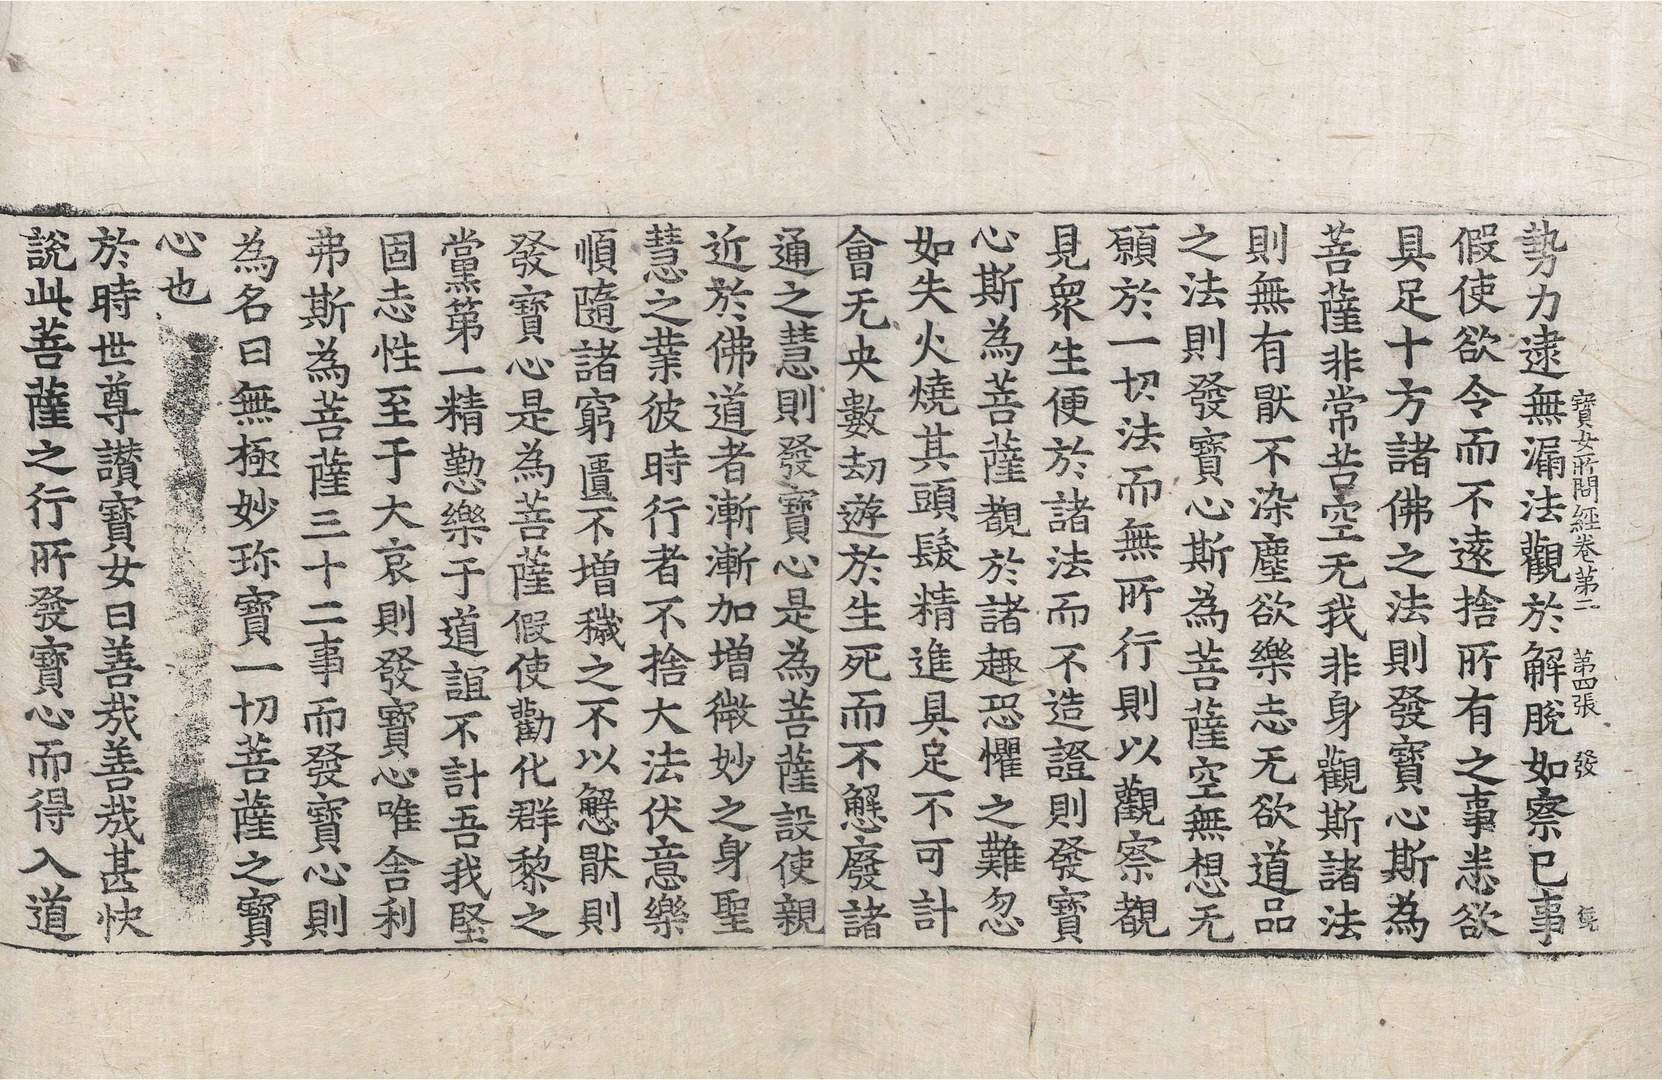 寶女所問經卷第二　第四張　發
勢力逮無漏法觀於解脫如察已事
假使欲令而不遠捨所有之事悉欲
具足十方諸佛之法則發寶心斯為
菩薩非常苦空无我非身觀斯諸法
則無有猒不染塵欲樂志无欲道品
之法則發寶心斯為菩薩空無想无
願於一切法而無所行則以觀察覩
見衆生便於諸法而不造證則發寶
心斯為菩薩覩於諸趣恐懼之難忽
如失火燒其頭髮精進具足不可計
會无央數劫遊於生死而不懈廢諸
通之慧則發寶心是為菩薩設使親
近於佛道者漸漸加增微妙之身聖
慧之業彼時行者不捨大法伏意樂
順隨諸窮匱不增穢之不以懈猒則
發寶心是為菩薩假使勸化群黎之
黨第一精懃樂于道誼不計吾我堅
固志性至于大哀則發寶心唯舍利
弗斯為菩薩三十二事而發寶心則
為名曰無極妙珎寶一切菩薩之寶
心也
於時世尊讃寶女曰善哉善哉甚快
說此菩薩之行所發寶心而得入道